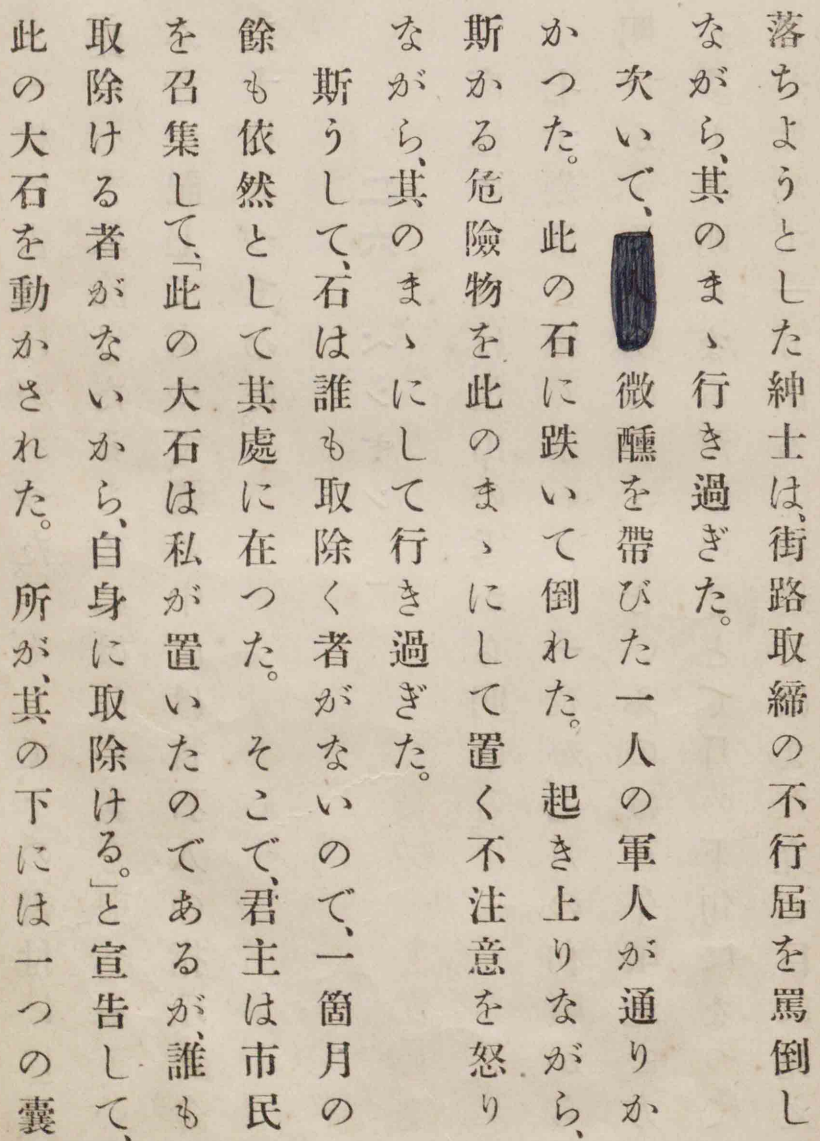 落ちようとした紳士は、街路取締の不行屆を罵倒し
ながら、其のまゝ行き過ぎた。
次いで、微醺を帶びた一人の軍人が通りか
かつた。此の石に跌いて倒れた。起き上りながら、
斯かる危險物を此のまゝにして置く不注意を怒り
ながら、其のまゝにして行き過ぎた。
斯うして、石は誰も取除く者がないので、一箇月の
餘も依然として其處に在つた。そこで、君主は市民
を召集して、「此の大石は私が置いたのであるが、誰も
取除ける者がないから、自身に取除ける。」と宣告して、
此の大石を動かされた。所が、其の下には一つの囊